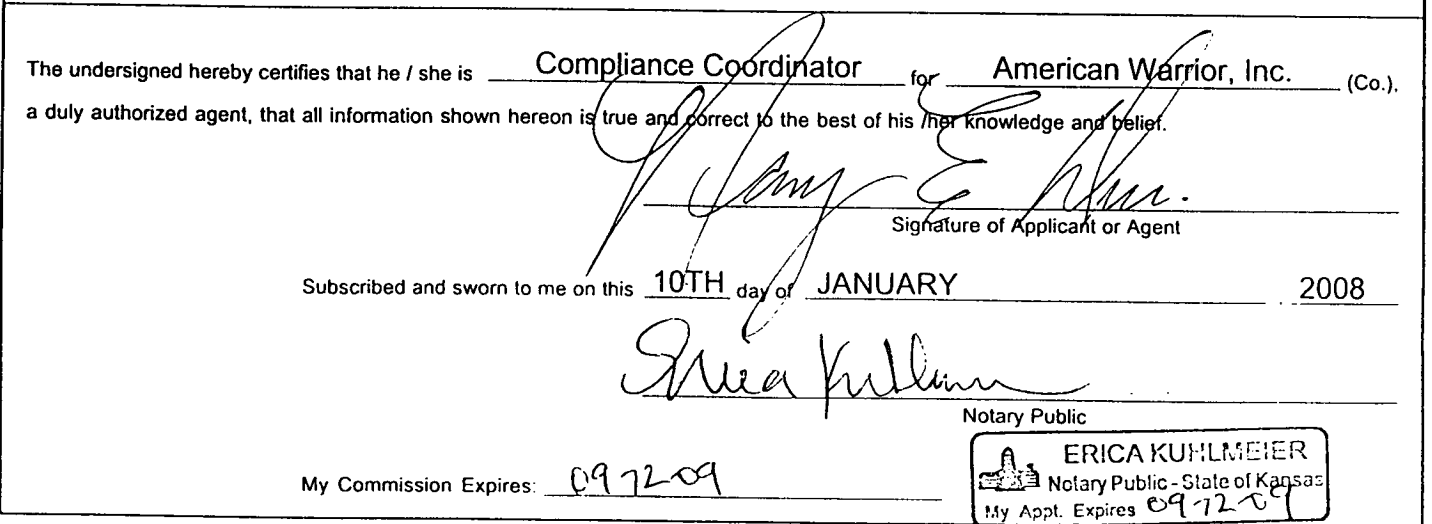 The undersigned hereby certifies that he / she is Compliance Coordinator for American Warrior, Inc. (Co.),
a duly authorized agent, that all information shown hereon is true and correct to the best of his /her knowledge and belief.
E
Signature of Applicant or Agent
Subscribed and sworn to me on this 10TH day of JANUARY 2008
Erica
Notary Public
ERICA KUHLMEIER
Notary Public - State of Kansas
My Commission Expires: 09-12-09
My Appt. Expires 09-12-09